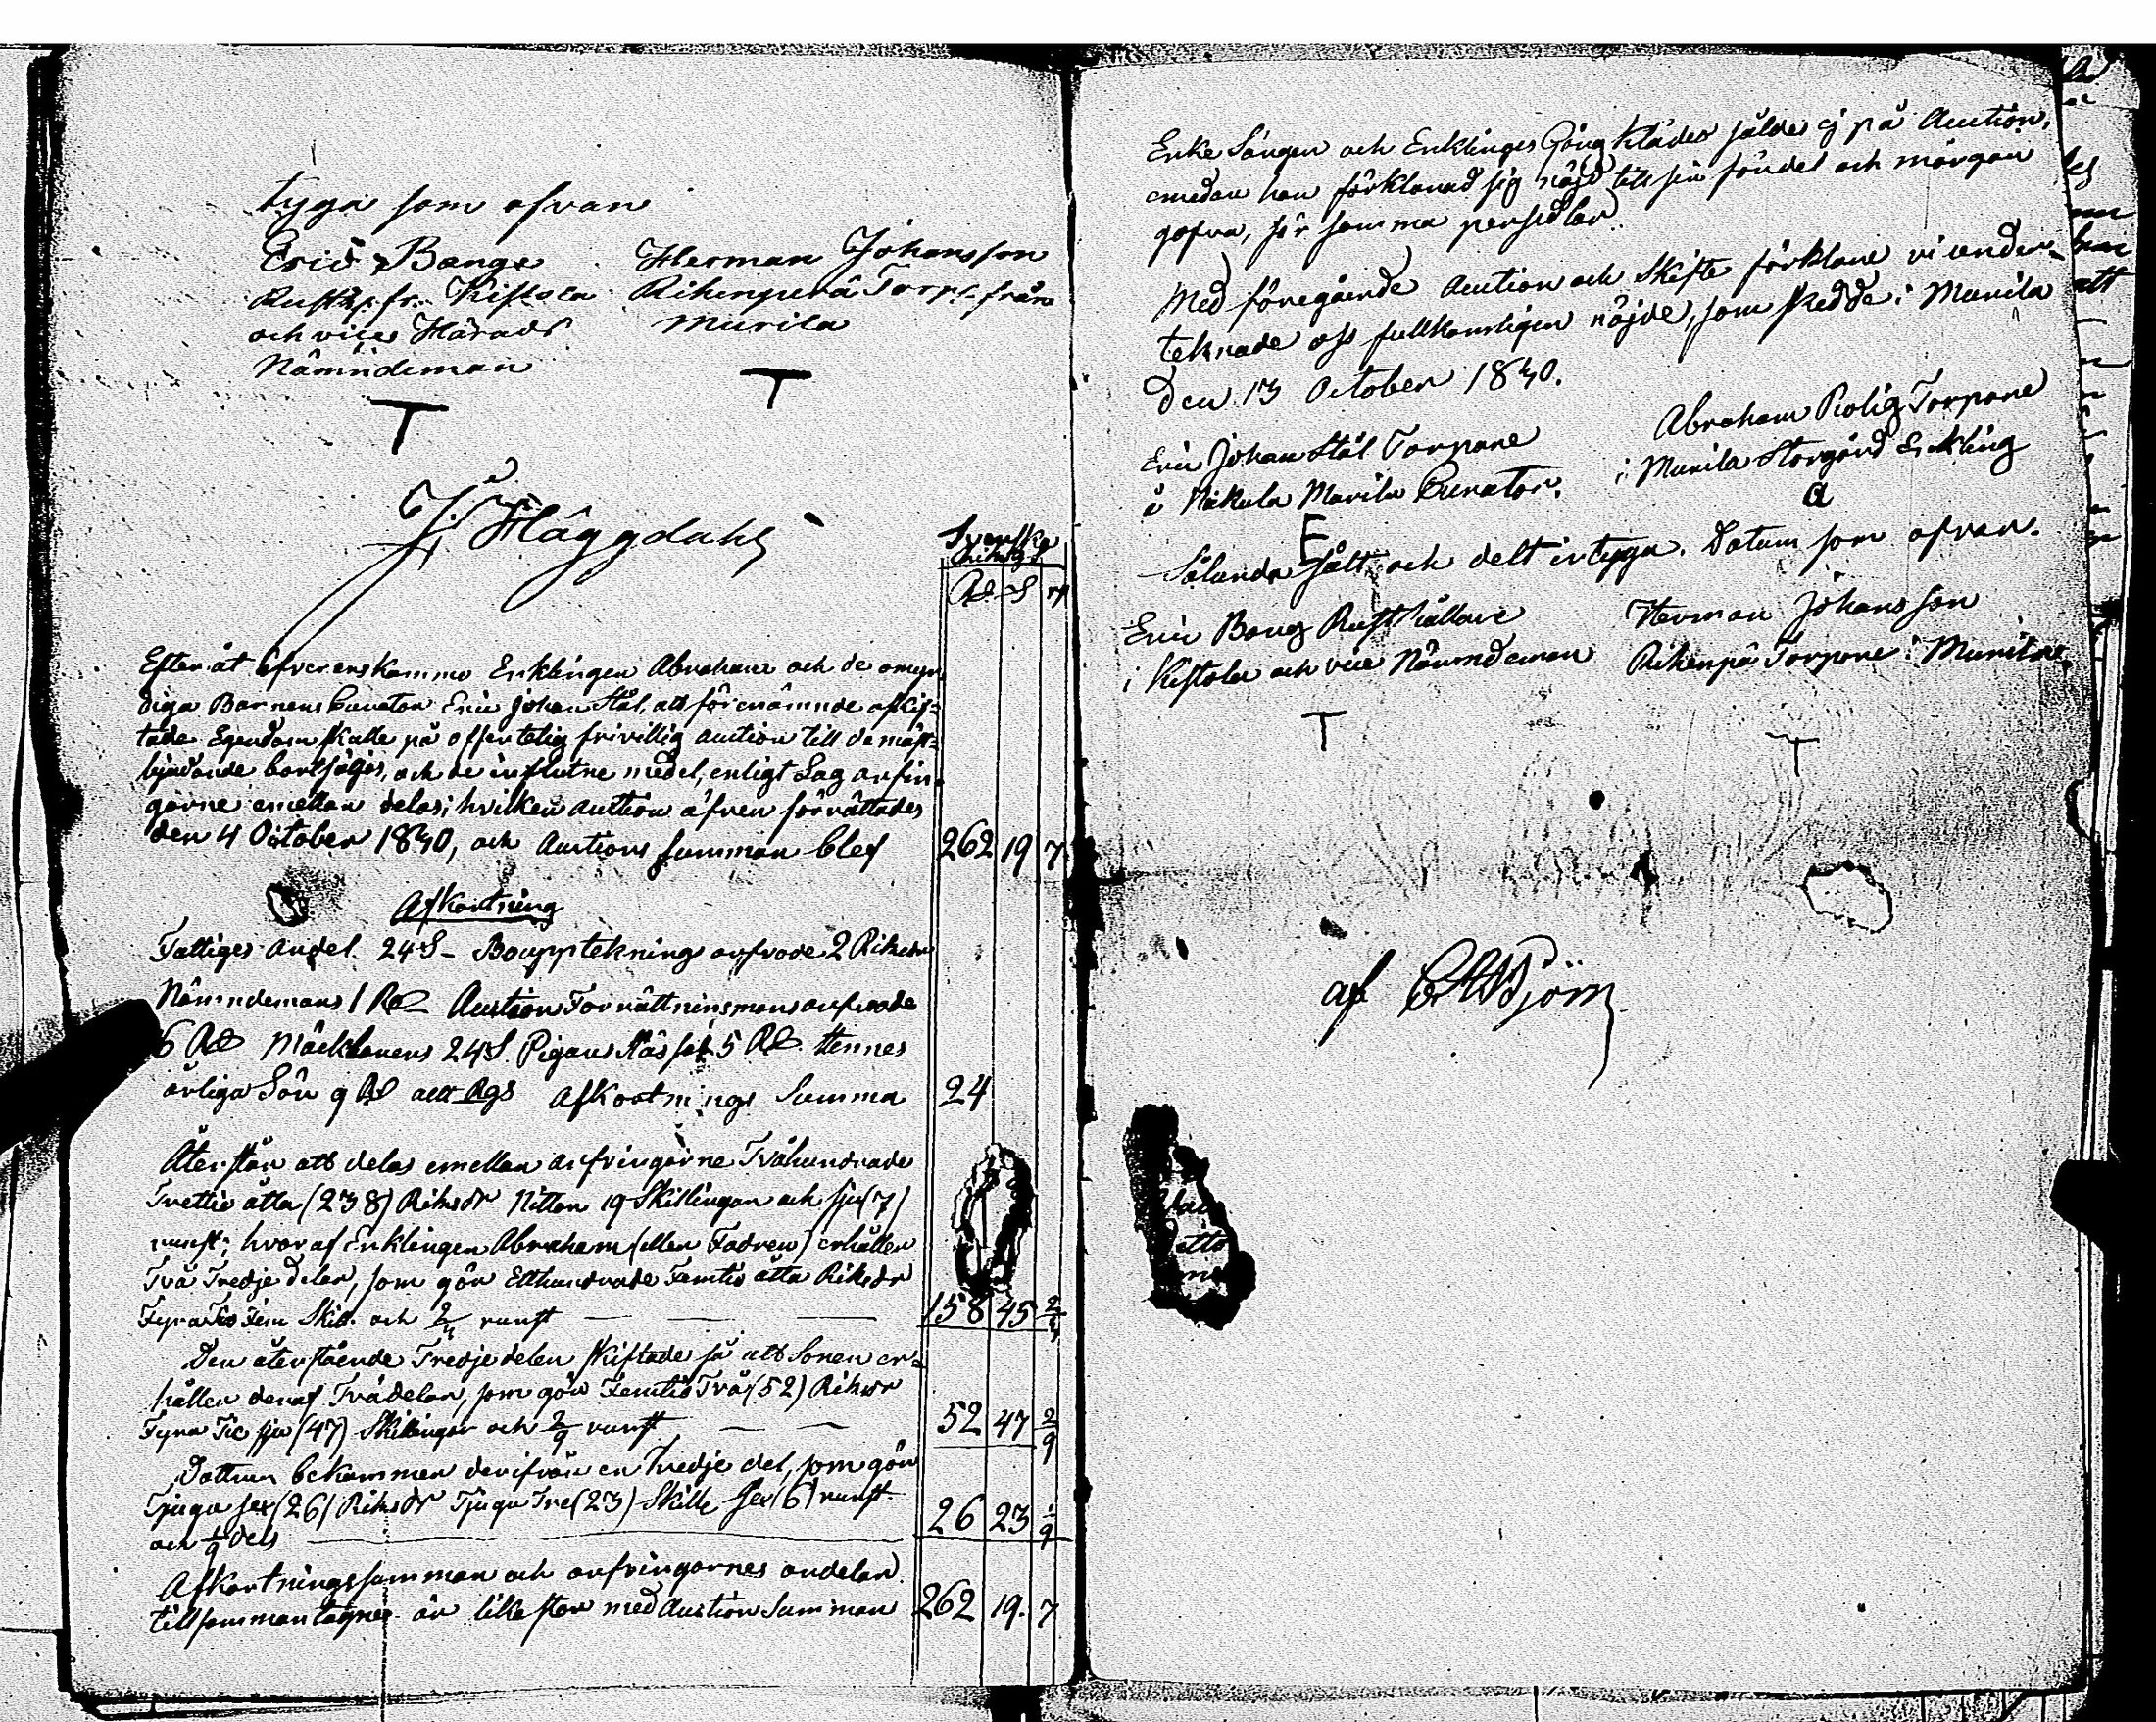 tyga som ofvan
Eric Bange Herman Johansson
Rusth. fr. Kistola Rikenperä Torp. från
och vice Härads Murila
Nämndeman
T T
J. Häggdahl
Svenska
Riksg.
Rd S r
Efter åt öfverenskommo Enklingen Abraham och de omyn
diga Barnens Curator Eric Johan Stål, att förenämnde afskif=
tade Egendom skulle på offentelig frivillig auction till de mäst=
bjudande bortsäljas, och de influtne medel, enligt Lag arfin=
garne emellan delas; hvilken auction äfven förrättades
den 4 October 1840, och Auctions summan blef 262 19 7
Afkortning
Fattiges andel 24 S - Boupptekningsarfvode 2 Riksdr
Nämndemans 1 Rd Auction Förrättninsmans arfvode
6 Rd Mäcklarens 24 S. Pigans 5 Rd. Hennes
årliga Lön 9 Rd allt Rgs Afkortnings Summa 24
Återstår att delas emellan arfvingarne Tvåhundrade
Trettio åtta (238) Riksdr Nitton 19 Skillingar och sju (7)
runst; hvaraf Enklingen Abraham (eller Fadren) erhåller
Två Tredje delar, som gör Etthundrade Femtio åtta Riksdr
Fyra Tio Fem Skill. och runst 158 45
Den återstående Tredjedelen skiftade så att Sonen er=
håller deraf Tvådelar, som gör Femtio Två (52) Riksdr
Fyra Tio sju (47) Skillingar och 2/9 runst 52 47 2/9
Dottren bekommer derifrån en tredje del, som gör
Tjugu sex (26) Riksdr Tjugu Tre (23) Skill. sex (6) runst.
och 1/9 dels 26 23 1/9
Afkortningssumman och arfvingarnes andelar
tillsammantagnes är lika stor med Auction Summan 262 19. 7
Enke Sängen och Enklinges Gång Kläder såldes ej på Auction,
emedan han förklarad sig nöjd till sin fördel och morgon
gofva, för samma persedlar.
Med föregående Auction och Skifte förklare vi under=
teknade oss fullkomligen nöjde, som skedde i Murila
den 13 October 1840.
Eric Johan Stål Torpare Abraham Rolig Torpare
å Nikula Murila Curator. i Murila Storgård Enkling
E a
Sålunda sålt och delt intyga. Datum som ofvan.
Eric Bang Rusthållare Herman Johansson
i Kistola och vice Nämndeman Rikenpä Torpare i Murila
T T
af Björn